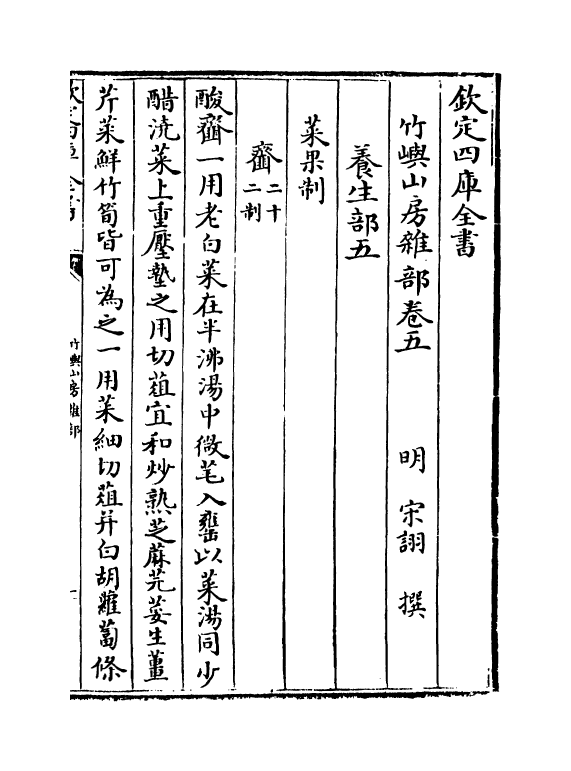 欽定四庫全書
竹嶼山房雜部卷五　明　宋詡　撰
養生部五
菜果制
虀二十二制
酸虀一用老白菜在半沸湯中微芼入罋以菜湯同少
醋澆菜上重壓墊之用切葅宜和炒熟芝蔴芫荽生薑
芹菜鮮竹筍皆可為之一用菜細切葅并白胡蘿蔔條
欽定四庫全書
竹嶼山房雜部